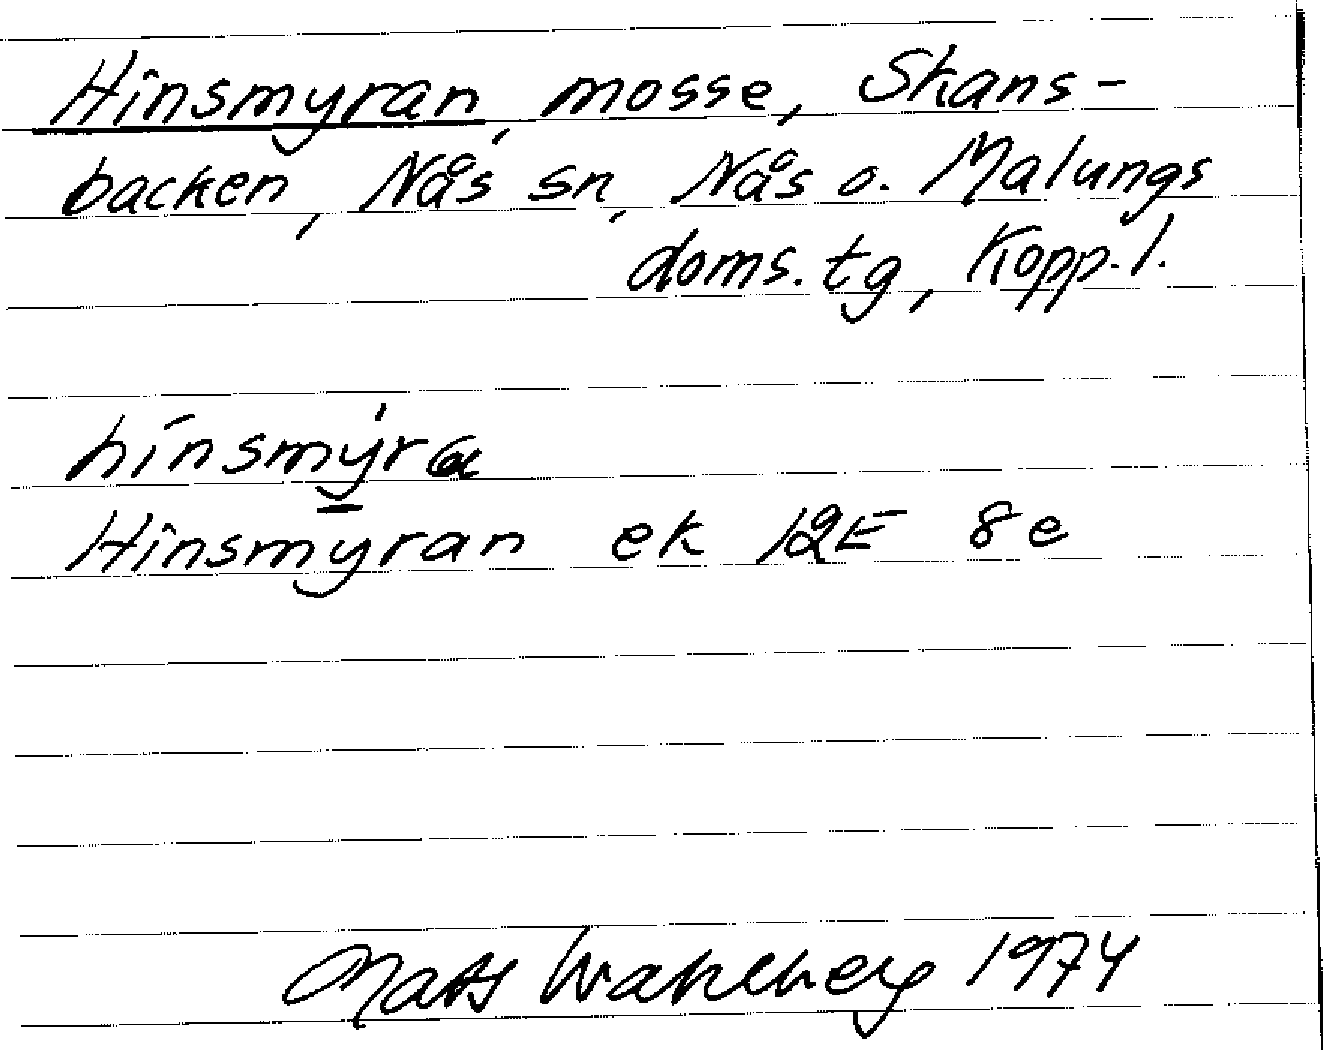 Hinsmyran, mosse, Skans-
backen, Nås sn, Nås o. Malungs
doms. tg, Kopp. l.
hinsmýra
Hinsmyran ek 12E 8e
Mats Wahlberg 1974